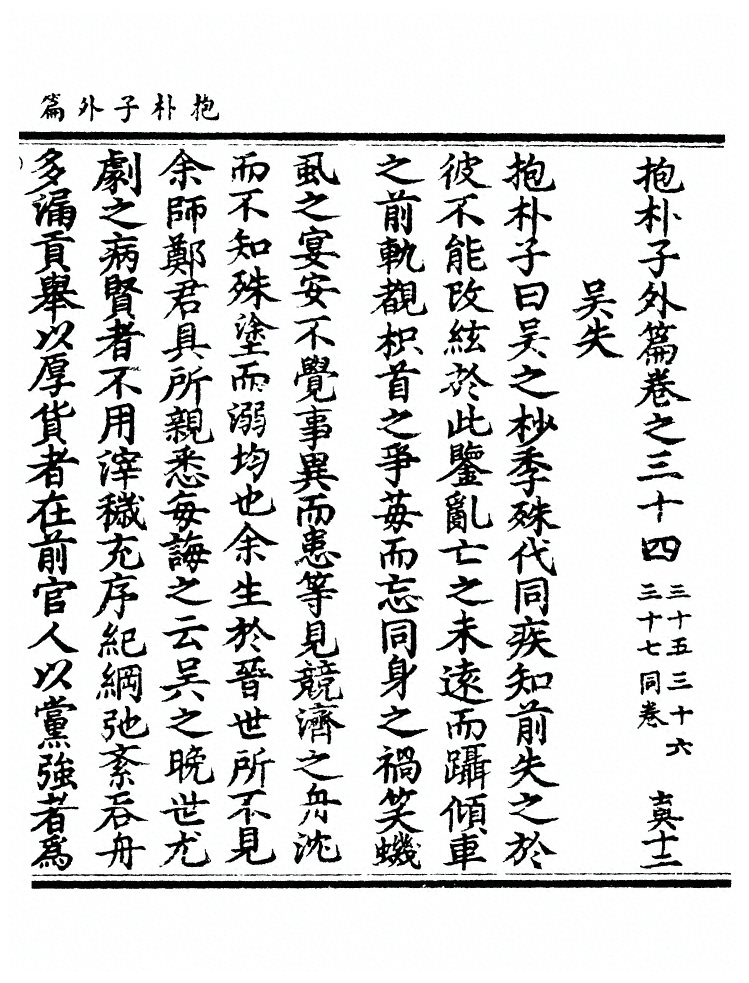 抱朴子外篇
抱朴子外篇卷之三十四 三十五三十六三十七同卷 真十二
吴失
抱朴子曰吴之杪季殊代同疾知前失之於
彼不能改絃於此鑒亂亡之未遠而躡傾車
之前軌覩枳首之爭莓而忘同身之禍笑蟣
虱之宴安不覺事異而患等見競濟之舟沈
而不知殊塗而溺均也余生於晉世所不見
余師鄭君具所親悉每誨之云吴之晚世尤
劇之病賢者不用滓穢充序紀綱弛紊吞舟
多漏貢舉以厚貨者在前官人以黨強者爲